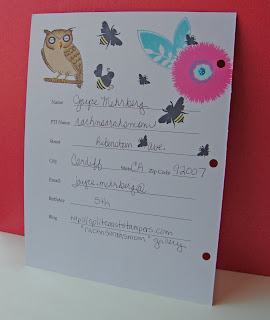 Name Joyce Mehrberg
PTI Name rachnsarahsmom
Street Rubenstein Ave.
City Cardiff State CA Zip Code 92007
Email: joyce.mehrberg@
Birthday 5th
Blog http://splitcoaststampers.com
"rachnsarahsmom" gallery